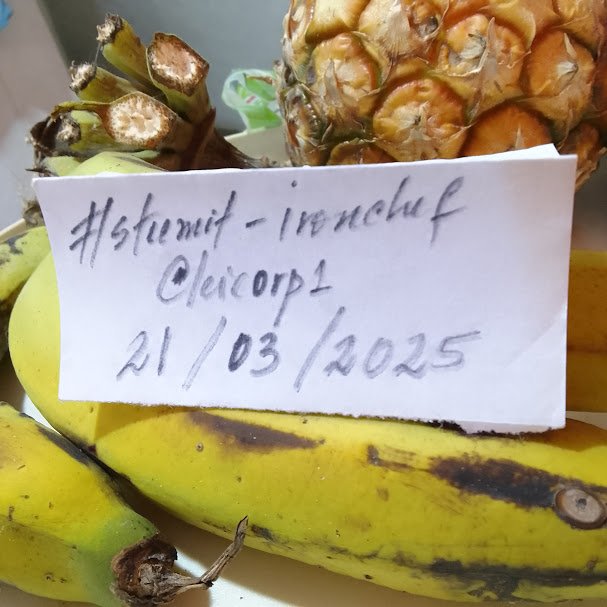 #steemit-ironchef
@leicorp1
21/03/2025